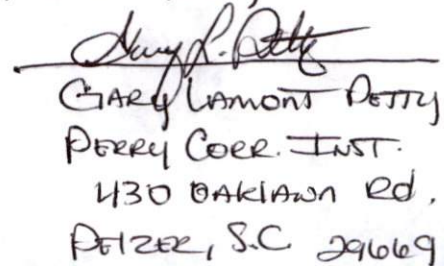 Gary L. Petty
GARY LAMONT PETTY
PERRY CORR. INST.
430 OAKLAWN Rd.
PELZER, S.C. 29669